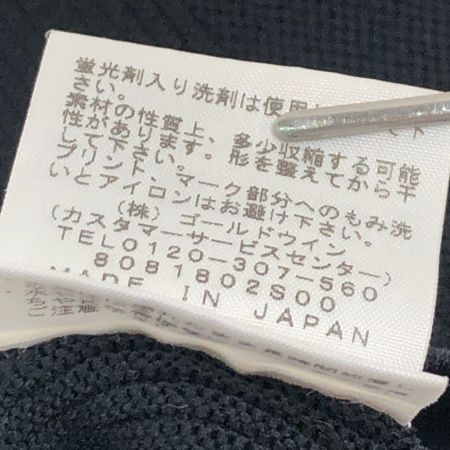 蛍光剤入り洗剤は使用 下
さい。
素材の性質上、多少収縮する可能
性があります。形を整えてから干
して下さい。
プリント、マーク部分へのもみ洗
いとアイロンはお避け下さい。
(株)ゴールドウイン
(カスタマーサービスセンター)
TEL0120-307-560
8081802S00
MADE IN JAPAN